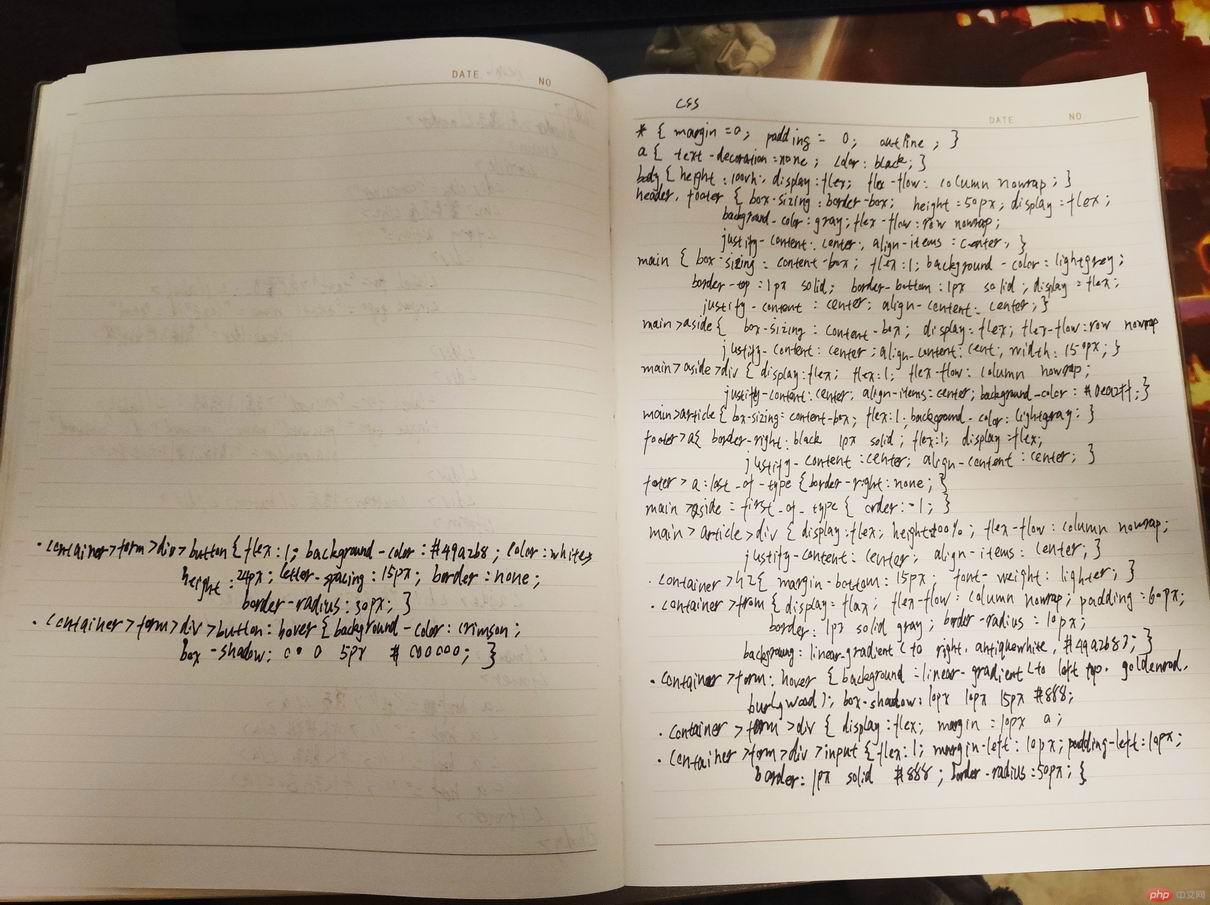 DATE NO
· container>form>div>button{flex:1; background-color:#49a2b8; color:white;
height:24px; letter-spacing:15px; border:none;
border-radius:30px; }
· container>form>div>button:hover{background-color: crimson;
box-shadow: 0 0 5px #000000; }
css
DATE NO
* { margin=0; padding= 0; outline; }
a{ text-decoration=none; color:black; }
body{height:100vh; display:flex; flex-flow: column nowrap; }
header, footer { box-sizing:border-box; height=50px; display=flex;
background-color:gray; flex-flow:row nowrap;
justify-content:center, align-items:center; }
main { box-sizing: content-box; flex:1; background-color:lightgrey;
border-top:1px solid; border-bottom:1px solid; display=flex;
justify-content:center; align-content:center; }
main>aside{ box-sizing:content-box; display=flex; flex-flow:row nowrap
justify-content:center; align-content:cent; width:150px; }
main>aside>div{display:flex; flex:1; flex-flow:column nowrap;
justify-content:center; align-items=center; background-color:
main>article{box-sizing:content-box; flex:1; background-color:lightgray: }
footer>a{ border-right:black 1px solid; flex:1; display=flex;
justify-content:center; align-content:center; }
footer>a:last_of-type{border-right:none; }
main>aside=first_of_type{ order:-1; }
main>article>div{display:flex; flex-flow:column nowrap;
justify-content:center; align-items:center; }
· container>h2{ margin-bottom:15px; font-weight:lighter; }
· container>from{display=flax; flex-flow:column nowrap; padding=60px;
border:1px solid gray; border-radius=10px;
linear-gradient(to right, antiquewhite, #49a2b8); }
· container>form:hover {background=linear-gradient(to left top, goldenrod,
burlywood); box-shadow:10px 10px 15px #888;
· container>form>div{display:flex; margin=10px a;
· container>form>div>input{flex:1; margin-left:10px; padding-left:10px;
border:1px solid #888; border-radius:50px; }
php 中文网